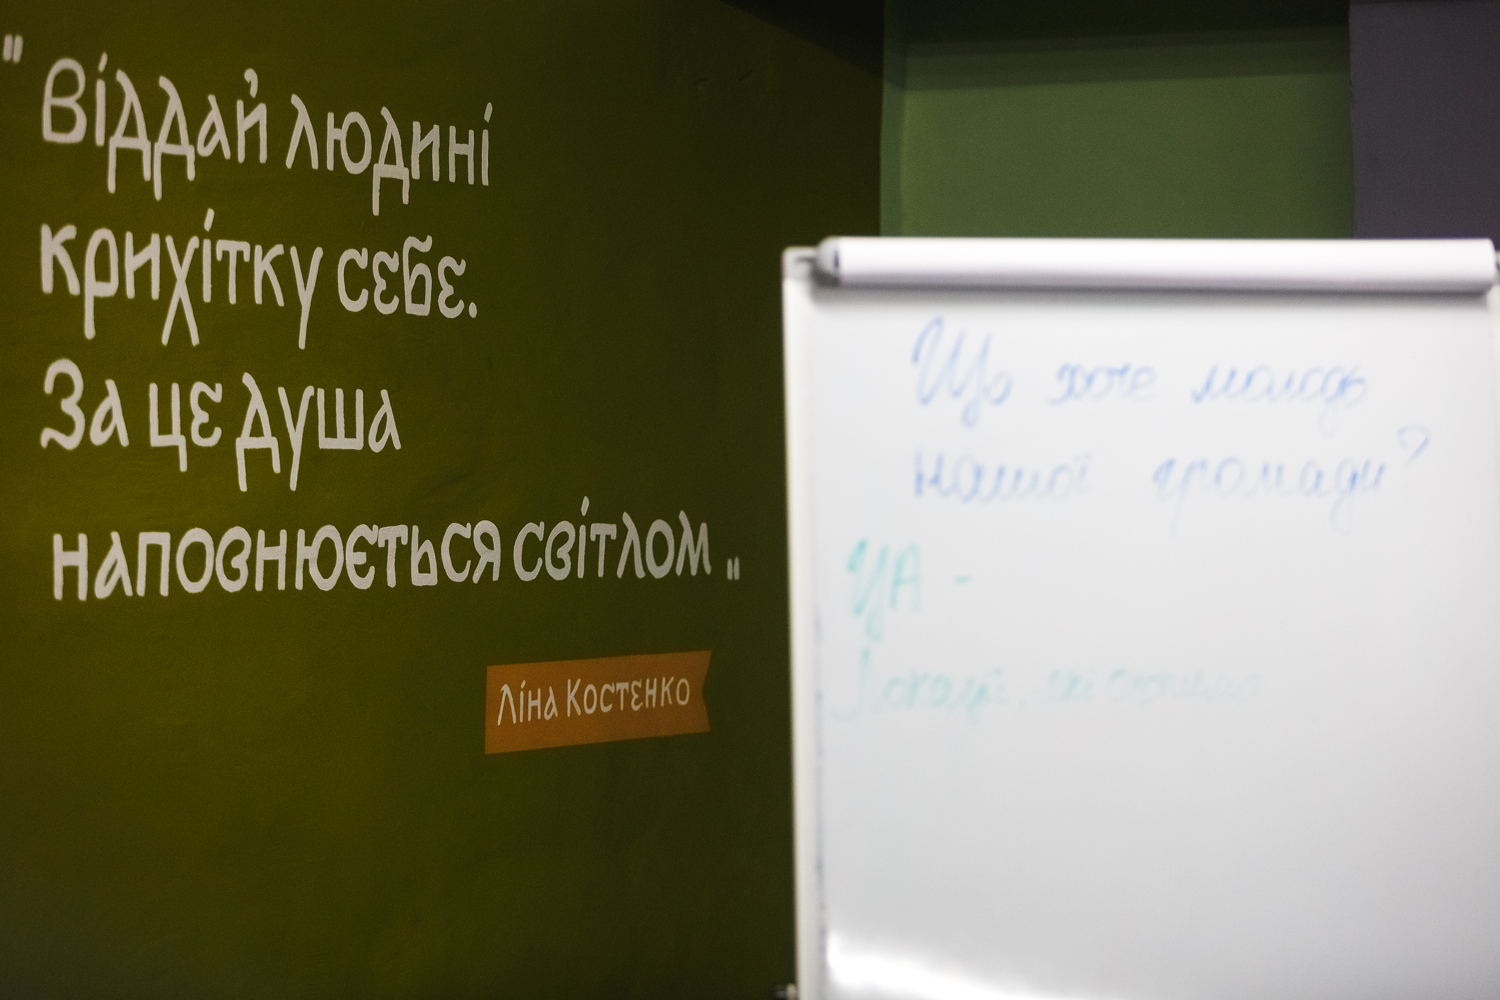 "Віддай людині
крихітку себе.
За це душа
наповнюється світлом„
Ліна Костенко
Що хоче молодь
нашої громади?
ЦА -
Локації, які